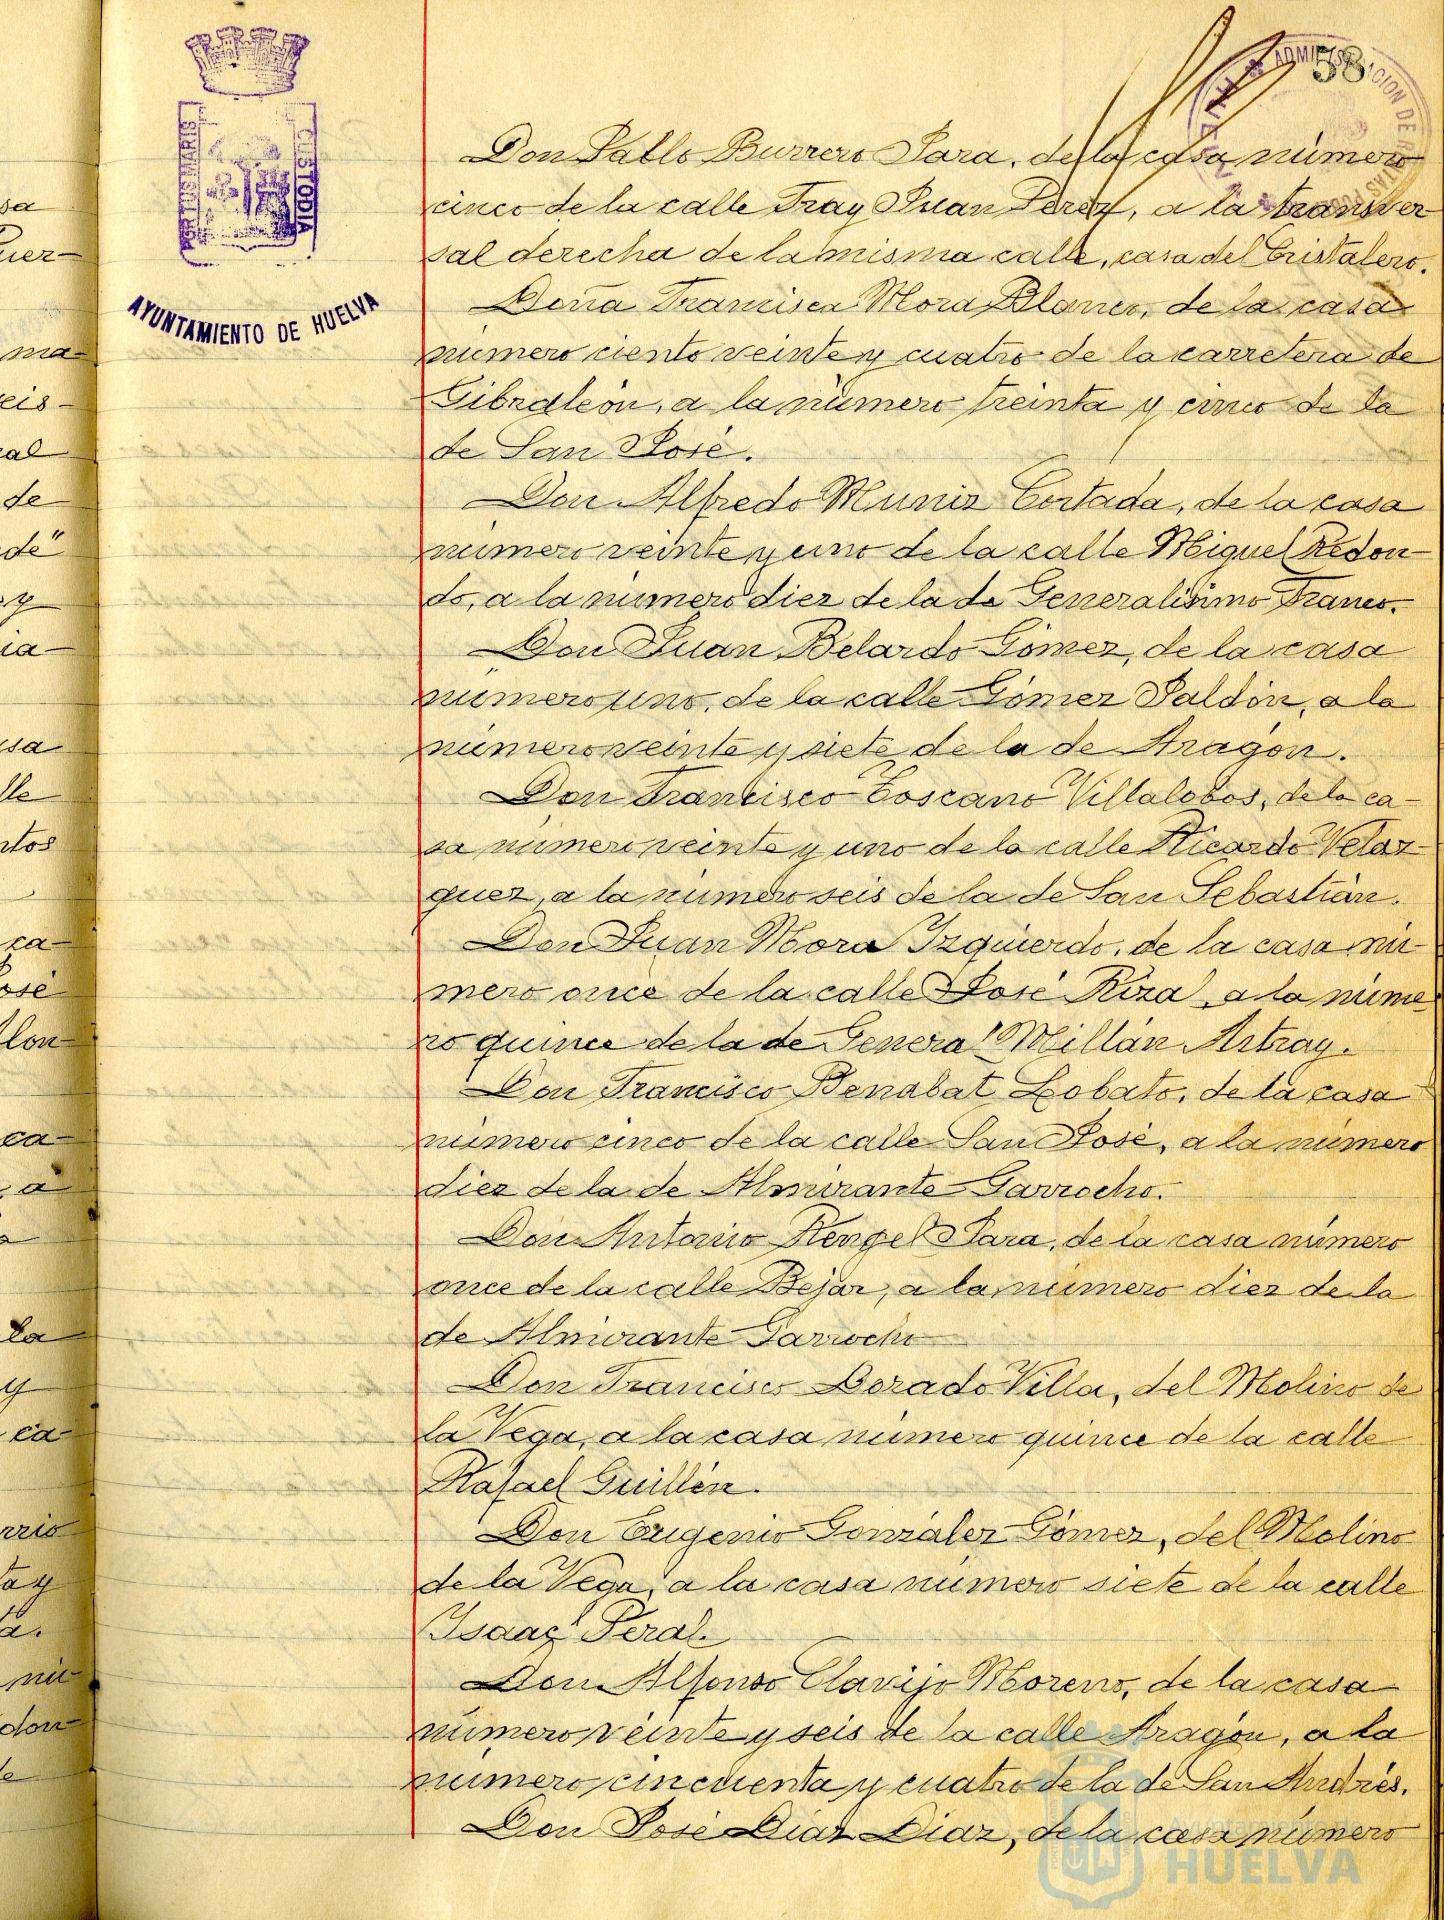 58
ADMINISTRACION DE RENTAS PUBLICAS
HUELVA
PORTUS MARIS
CUSTODIA
AYUNTAMIENTO DE HUELVA
Don Pablo Burrero Para, de la casa número
cinco de la calle Fray Juan Perez, a la transver-
sal derecha de la misma calle, casa del Cristalero.
Doña Francisca Mora Blanco, de la casa
número ciento veinte y cuatro de la carretera de
Gibraleón, a la número treinta y cinco de la
de San José.
Don Alfredo Muniz Cortada, de la casa
número veinte y uno de la calle Miguel Redon-
do, a la número diez de la de Generalisimo Franco.
Don Juan Belardo Gómez, de la casa
número uno, de la calle Gómez Jaldón, a la
número veinte y siete de la de Aragón.
Don Francisco Toscano Villalobos, de la ca-
sa número veinte y uno de la calle Ricardo Velaz-
quez, a la número seis de la de San Sebastián.
Don Juan Mora Izquierdo, de la casa nú-
mero once de la calle José Rizal, a la núme-
ro quince de la de General Millán Astray.
Don Francisco Benabat Lobato, de la casa
número cinco de la calle San José, a la número
diez de la de Almirante Garrocho.
Don Antonio Rengel Para, de la casa número
once de la calle Bejar, a la número diez de la
de Almirante Garrocho
Don Francisco Dorado Villa, del Molino de
la Vega, a la casa número quince de la calle
Rafael Guillén.
Don Eugenio González Gómez, del Molino
de la Vega, a la casa número siete de la calle
Isaac Peral.
Don Alfonso Clavijo Moreno, de la casa
número veinte y seis de la calle Aragón, a la
número cincuenta y cuatro de la de San Andrés.
Don José Díaz Diaz, de la casa número
Ayuntamiento de
HUELVA